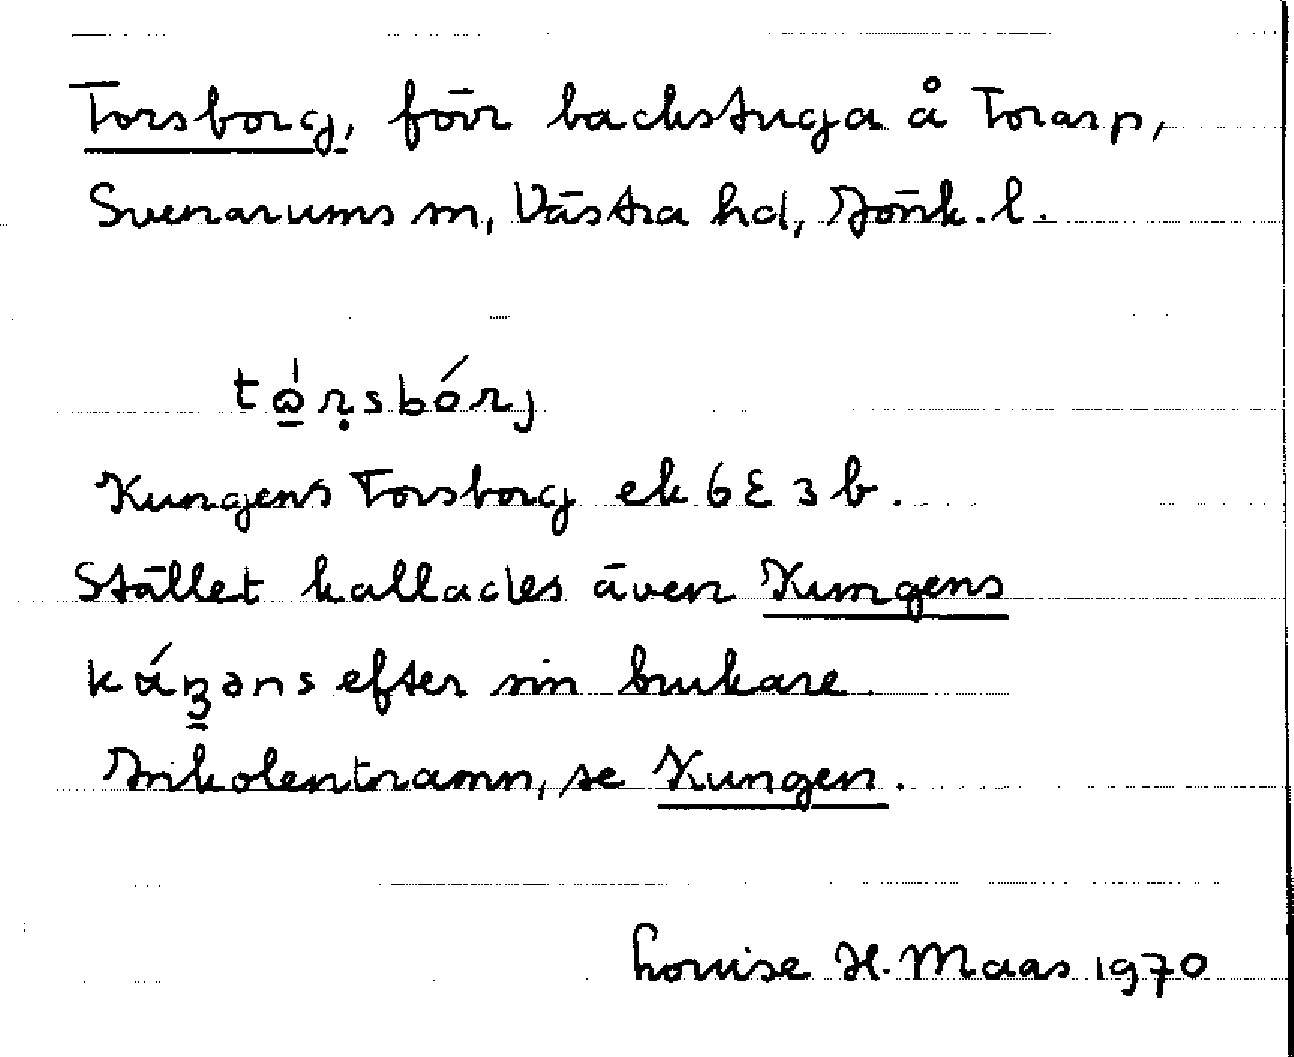 Torsborg, förr backstuga å Torarp,
Svenarums sn, Västra hd, Jönk. l.
Kungens Torsborg ek 6E 3b.
Stället kallades även Kungens
efter sin brukare.
se Kungen.
Louise H. Maas 1970